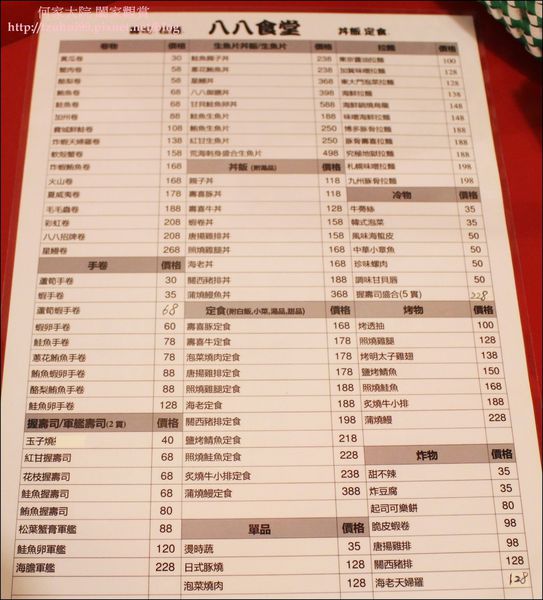 何家大院 閤家觀賞
http://tzuhui99.pixnet.net/blog
八八食堂
丼飯 定食
卷物 價格
黃瓜卷 30
蟹肉卷 58
酪梨卷 58
鮪魚卷 68
鮭魚卷 68
加州卷 88
費城鮮鮭卷 108
炸蝦天婦羅卷 138
軟殼蟹卷 158
炸蝦鮪魚卷 168
火山卷 168
夏威夷卷 178
毛毛蟲卷 188
彩虹卷 208
八八招牌卷 208
星鰻卷 268
手卷 價格
蘆筍手卷 30
蝦手卷 35
蘆筍蝦手卷 68
蝦卵手卷 60
鮭魚手卷 78
蔥花鮪魚手卷 78
鮪魚蝦卵手卷 88
酪梨鮪魚手卷 88
鮭魚卵手卷 128
握壽司/軍艦壽司(2貫) 價格
玉子燒 40
紅甘握壽司 68
花枝握壽司 68
鮭魚握壽司 68
鮪魚握壽司 80
松葉蟹膏軍艦 88
鮭魚卵軍艦 120
海膽軍艦 228
生魚片丼飯/生魚片 價格
鮭魚親子丼 238
蔥花鮪魚丼 238
星鰻丼 368
八八御膳丼 388
甘貝鮭魚卵丼 588
鮭魚生魚片 188
鮪魚生魚片 250
紅甘生魚片 250
荒海刺身盛合生魚片 498
丼飯(附湯品) 價格
親子丼 118
壽喜豚丼 118
壽喜牛丼 128
蝦卷丼 158
唐揚雞排丼 158
照燒雞腿丼 168
海老丼 168
關西豬排丼 188
蒲燒鰻魚丼 368
定食(附白飯,小菜,湯品,甜品) 價格
壽喜豚定食 168
壽喜牛定食 178
泡菜燒肉定食 168
唐揚雞排定食 188
照燒雞腿定食 188
海老定食 188
關西豬排定食 198
鹽烤鯖魚定食 218
照燒鮭魚定食 228
炙燒牛小排定食 238
蒲燒鰻定食 388
單品 價格
燙時蔬 35
日式豚燒 128
泡菜燒肉 128
拉麵 價格
東京醬油拉麵 100
加賀味噌拉麵 128
東大門泡菜拉麵 128
海鮮拉麵 138
海鮮鍋燒烏龍 148
味噌海鮮拉麵 148
博多豚骨拉麵 188
豚骨壽喜拉麵 188
究極地獄拉麵 188
札幌味噌拉麵 198
九州豚骨拉麵 198
冷物 價格
牛蒡絲 35
韓式泡菜 35
風味海蜇皮 50
中華小章魚 50
珍味螺肉 50
調味甘貝唇 50
握壽司盛合(5貫) 228
烤物 價格
烤透抽 100
照燒雞腿 128
烤明太子雞翅 138
鹽烤鯖魚 150
照燒鮭魚 168
炙燒牛小排 188
蒲燒鰻 228
炸物 價格
甜不辣 35
炸豆腐 35
起司可樂餅 80
脆皮蝦卷 98
唐揚雞排 98
關西豬排 128
海老天婦羅 128